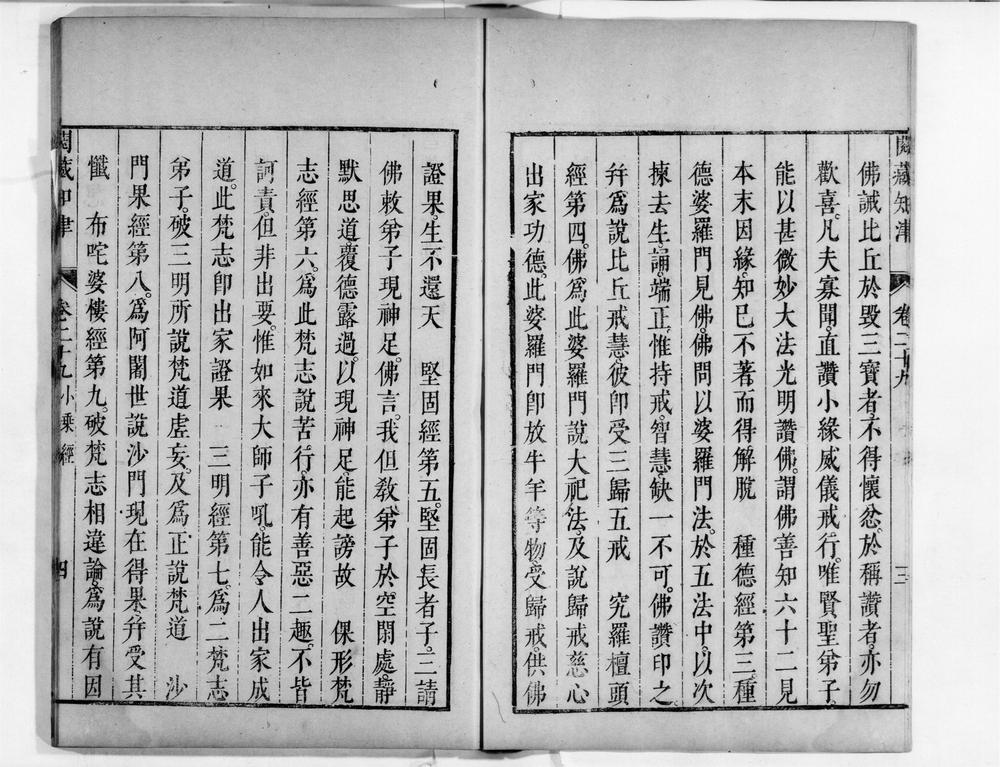 閱藏知津
卷二十九
三
佛誡比丘於毀三寶者。不得懷忿。於稱讚者。亦勿
歡喜。凡夫寡聞。直讚小緣威儀戒行。唯賢聖弟子。
能以甚微妙大法光明讚佛。謂佛善知六十二見
本末因緣。知已不著而得解脫 種德經第三。種
德婆羅門見佛。佛問以婆羅門法。於五法中。以次
揀去生誦端正。惟持戒智慧。缺一不可。佛讚印之。
幷爲說比丘戒慧。彼卽受三歸五戒 究羅檀頭
經第四。佛爲此婆羅門說大祀法。及說歸戒慈心
出家功德。此婆羅門卽放牛羊等物。受歸戒。供佛
證果。生不還天 堅固經第五。堅固長者子。三請
佛敕弟子現神足。佛言。我但敎弟子於空閑處。靜
默思道。覆德露過。以現神足。能起謗故 倮形梵
志經第六。爲此梵志說苦行。亦有善惡二趣。不皆
訶責。但非出要。惟如來大師子吼。能令人出家成
道。此梵志卽出家證果 三明經第七。爲二梵志
弟子。破三明所說梵道虛妄。及爲正說梵道 沙
門果經第八。爲阿闍世說沙門現在得果。幷受其
懺 布咤婆樓經第九。破梵志相違論。爲說有因
閱藏知津
卷二十九 小乘經
四